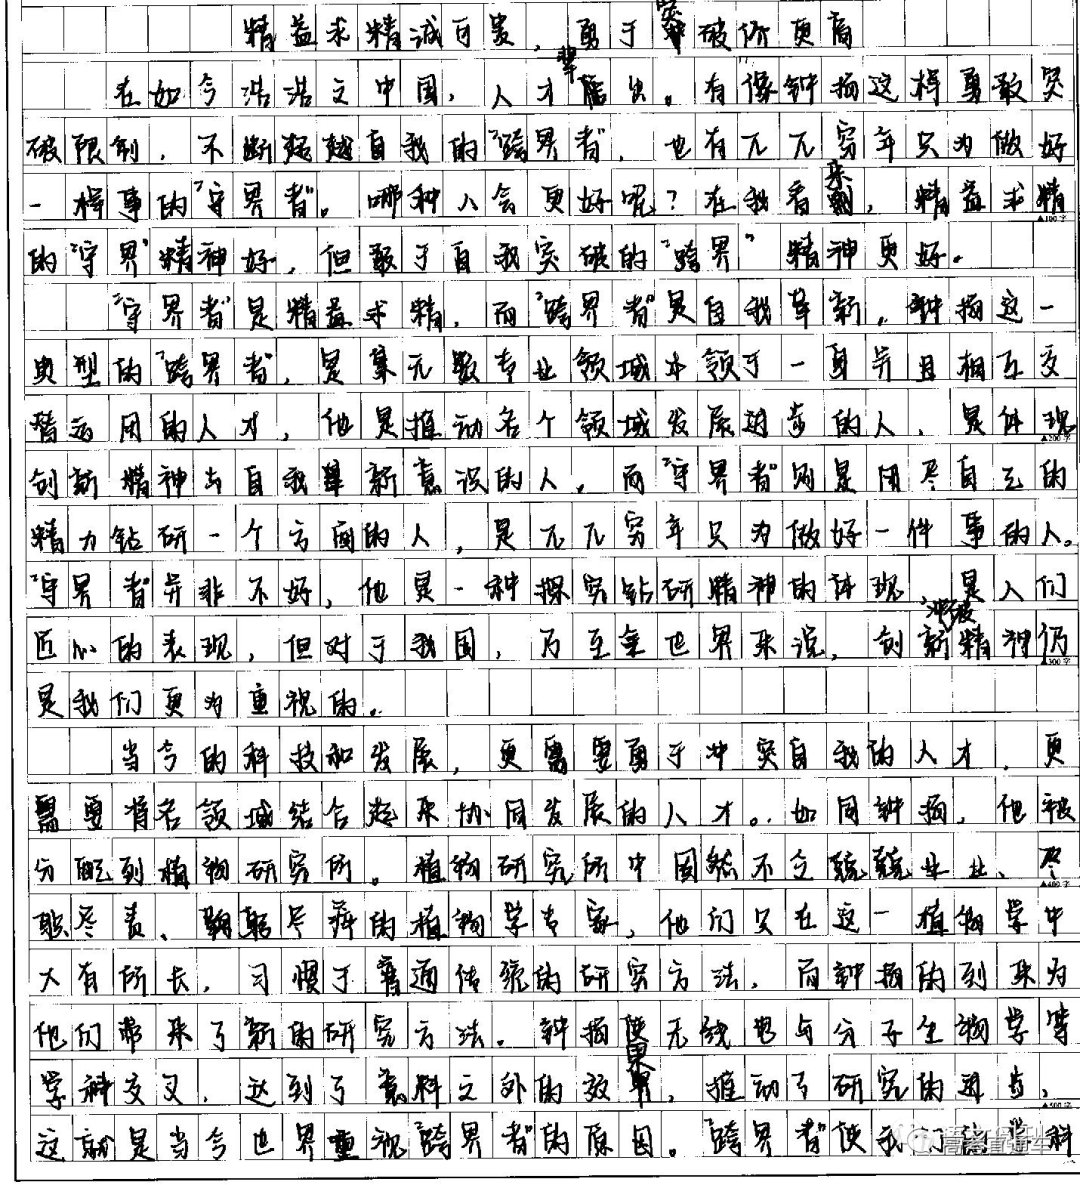 精益求精诚可贵，勇于突破价更高
在如今浩浩之中国，人才辈出。有像钟扬这样勇敢突
破限制，不断超越自我的“跨界者”，也有兀兀穷年只为做好
一样事的“守界者”。哪种人会更好呢？在我看来，精益求精
▲100字
的“守界”精神好，但敢于自我突破的“跨界”精神更好。
“守界者”是精益求精，而“跨界者”是自我革新。钟扬这一
典型的“跨界者”，是集无数专业领域本领于一身并且相互交
替运用的人才，他是推动各个领域发展进步的人，是体现
▲200字
创新精神与自我革新意识的人。而“守界者”则是用尽自己的
精力钻研一个方面的人，是兀兀穷年只为做好一件事的人。
“守界者”并非不好，他是一种探究钻研精神的体现，是人们
匠心的表现，但对于我国，乃至全世界来说，创新冲破精神仍
▲300字
是我们更为重视的。
当今的科技和发展，更需要勇于冲突自我的人才，更
需要将各领域结合起来协同发展的人才。如同钟扬，他被
分配到植物研究所。植物研究所中固然不乏兢兢业业、尽
▲400字
职尽责、鞠躬尽瘁的植物学专家，他们只在这一植物学中
大有所长，习惯于普通传统的研究方法，而钟扬的到来为
他们带来了新的研究方法。钟扬使无线电与分子生物学等
学科交叉，达到了意料之外的效果，推动了研究的进步，
▲500字
这就是当今世界重视“跨界者”的原因。“跨界者”使我们各学科